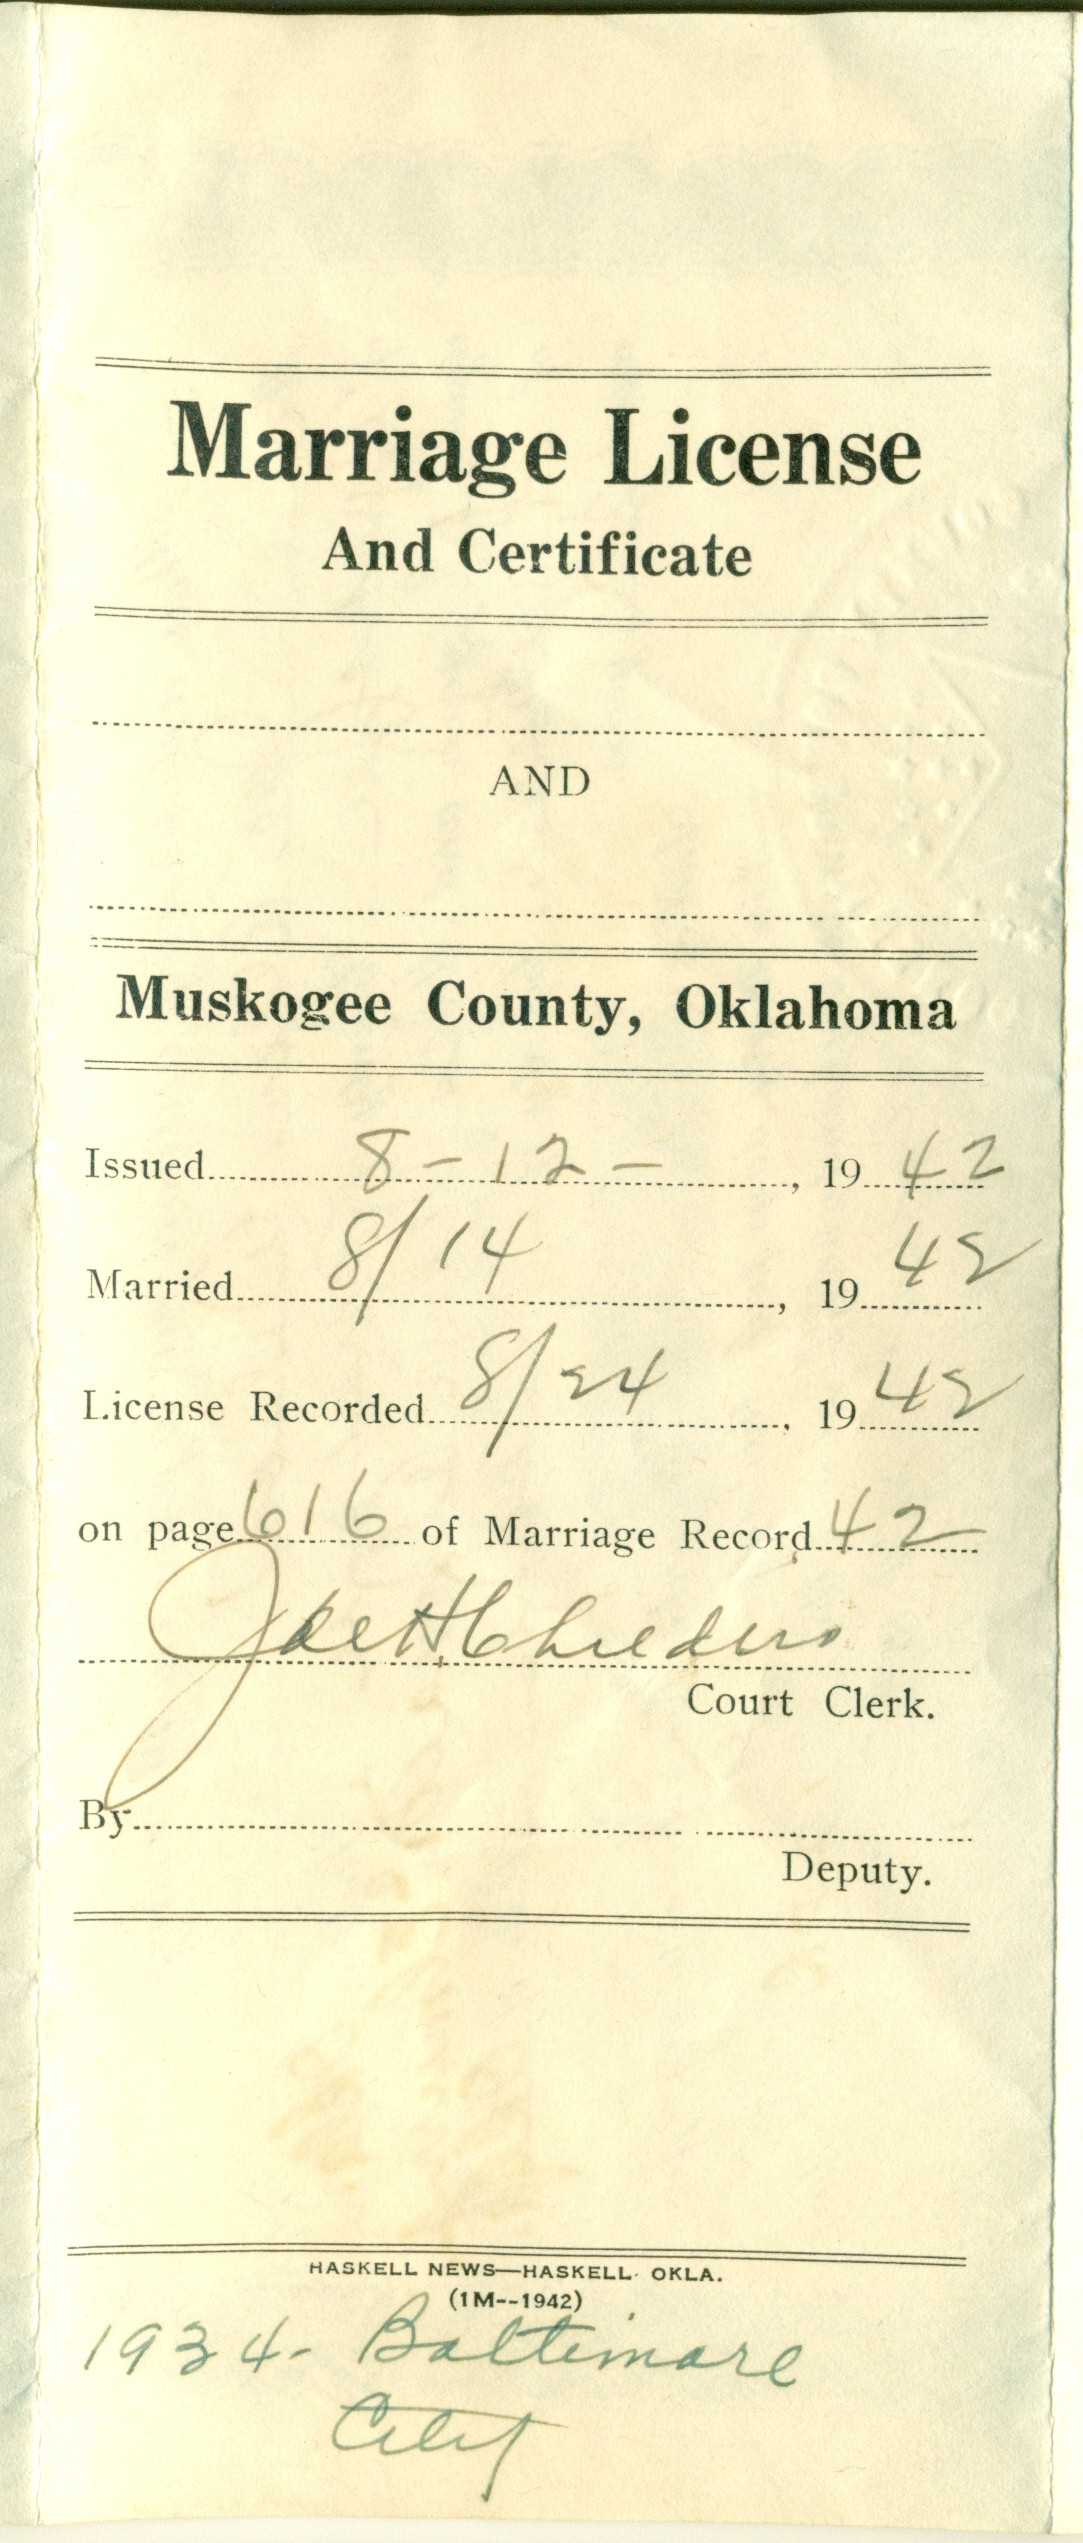 Marriage License
And Certificate
AND
Muskogee County, Oklahoma
Issued 8-12-, 1942
Married 8/14, 1942
License Recorded 8/24, 1942
on page 616 of Marriage Record 42
Joe H.
Court Clerk.
By
Deputy.
HASKELL NEWS—HASKELL OKLA.
(1M--1942)
1934- Baltimore
City